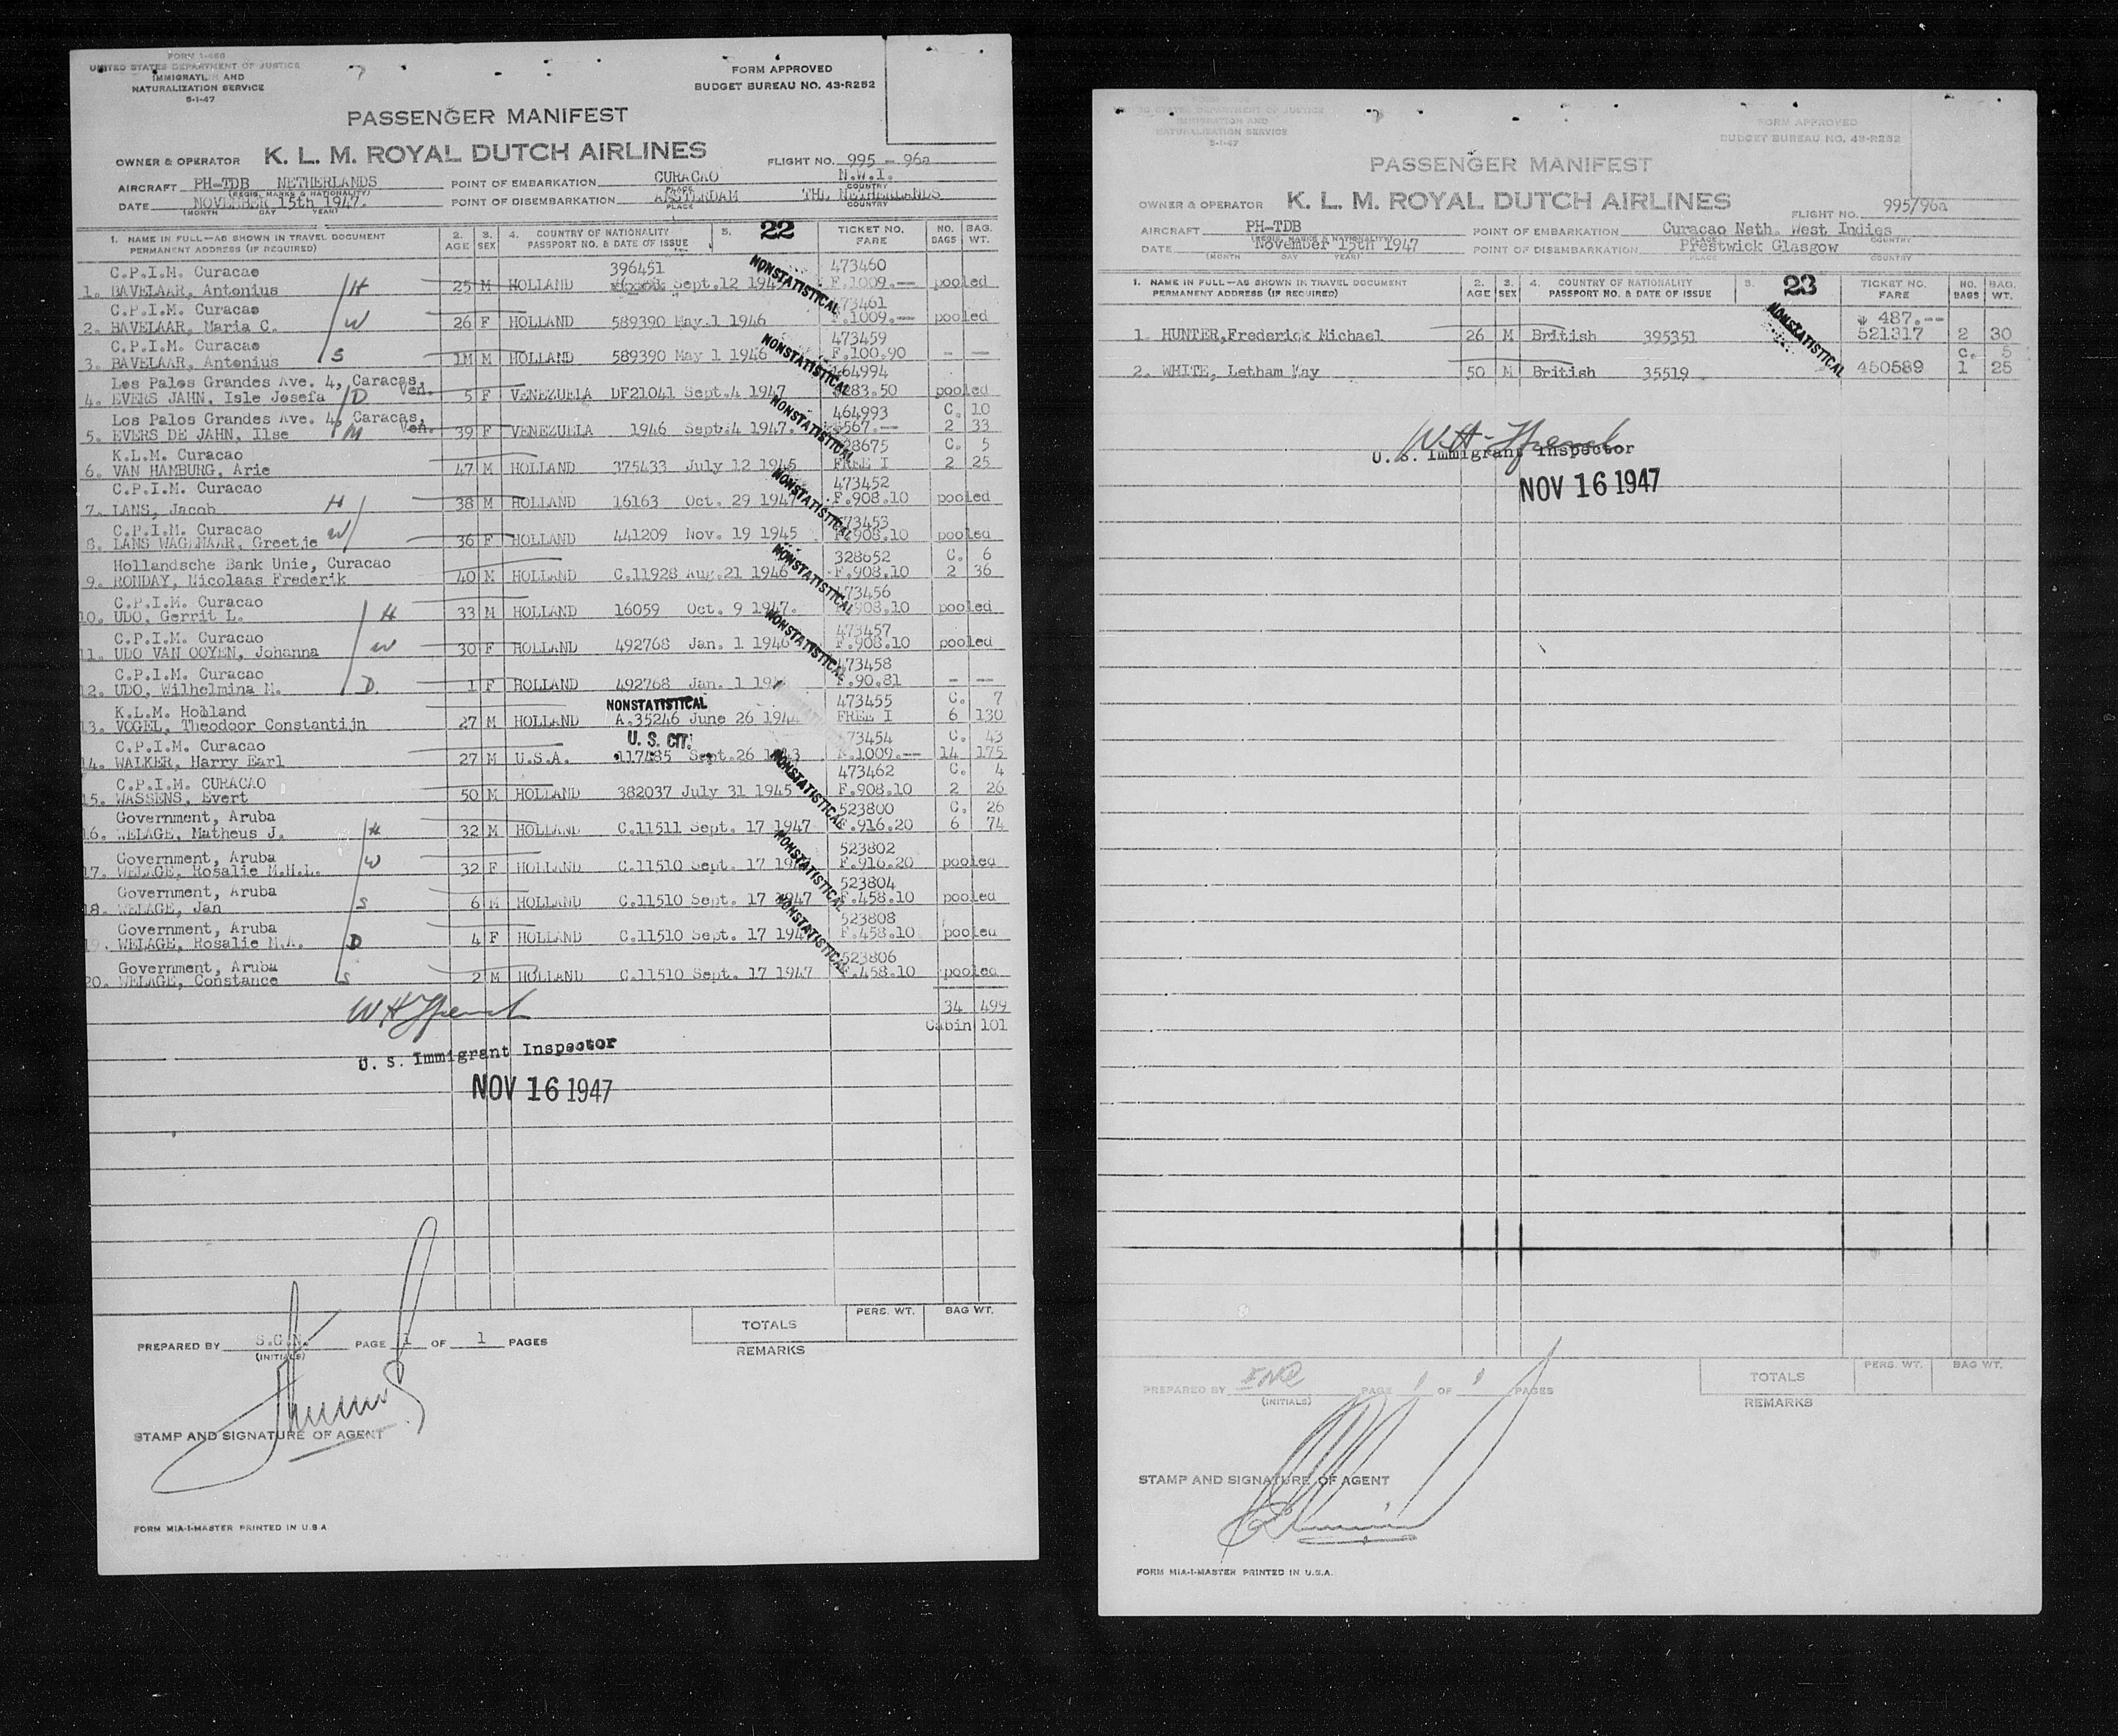 FORM I-466
UNITED STATES DEPARTMENT OF JUSTICE
IMMIGRATION AND
NATURALIZATION SERVICE
5-1-47
FORM APPROVED
BUDGET BUREAU NO. 43-R252
PASSENGER MANIFEST
OWNER & OPERATOR K. L. M. ROYAL DUTCH AIRLINES FLIGHT NO. 995 - 96a
AIRCRAFT PH-TDB NETHERLANDS POINT OF EMBARKATION CURACAO N.W.I.
(REGIS. MARKS & NATIONALITY) PLACE COUNTRY
DATE NOVEMBER 15th 1947. POINT OF DISEMBARKATION AMSTERDAM THE NETHERLANDS
(MONTH DAY YEAR) PLACE COUNTRY
1. NAME IN FULL—AS SHOWN IN TRAVEL DOCUMENT 2. 3. 4. COUNTRY OF NATIONALITY 5. 22 TICKET NO. NO. BAG.
PERMANENT ADDRESS (IF REQUIRED) AGE SEX PASSPORT NO. & DATE OF ISSUE FARE BAGS WT.
C.P.I.M. Curacao 396451 473460
1. BAVELAAR, Antonius H 25 M HOLLAND Sept.12 194 NONSTATISTICAL F.1009.— pooled
C.P.I.M. Curacao 473461
2. BAVELAAR, Maria C. W 26 F HOLLAND 589390 May.1 1946 F.1009.— pooled
C.P.I.M. Curacao 473459
3. BAVELAAR, Antonius S 1M M HOLLAND 589390 May 1 1946 NONSTATISTICAL F.100.90 - —
Los Palos Grandes Ave. 4, Caracas, Ven. 464994
4. EVERS JAHN, Isle Josefa D 5 F VENEZUELA DF21041 Sept.4 1947 $283.50 pooled
Los Palos Grandes Ave. 4, Caracas, Ven. 464993 C. 10
5. EVERS DE JAHN, Ilse M 39 F VENEZUELA 1946 Sept.4 1947. NONSTATISTICAL $567.— 2 33
K.L.M. Curacao 328675 C. 5
6. VAN HAMBURG, Arie 47 M HOLLAND 375433 July 12 1945 FREE I 2 25
C.P.I.M. Curacao 473452
7. LANS, Jacob H 38 M HOLLAND 16163 Oct. 29 1947 NONSTATISTICAL F.908.10 pooled
C.P.I.M. Curacao 473453
8. LANS WAGENAAR, Greetje W 36 F HOLLAND 441209 Nov. 19 1945 F.908.10 pooled
Hollandsche Bank Unie, Curacao 328652 C. 6
9. RONDAY, Nicolaas Frederik 40 M HOLLAND C.11928 Aug.21 1946 NONSTATISTICAL F.908.10 2 36
C.P.I.M. Curacao 473456
10. UDO, Gerrit L. H 33 M HOLLAND 16059 Oct. 9 1947. F.908.10 pooled
C.P.I.M. Curacao 473457
11. UDO VAN OOYEN, Johanna W 30 F HOLLAND 492768 Jan. 1 1946 NONSTATISTICAL F.908.10 pooled
C.P.I.M. Curacao 473458
12. UDO, Wilhelmina M. D 1 F HOLLAND 492768 Jan. 1 194 F.90.81 - —
K.L.M. Holland NONSTATISTICAL 473455 C. 7
13. VOGEL, Theodoor Constantijn 27 M HOLLAND A.35246 June 26 194 FREE I 6 130
C.P.I.M. Curacao U. S. CIT. 473454 C. 43
14. WALKER, Harry Earl 27 M U.S.A. 117485 Sept.26 1943 F.1009.— 14 175
C.P.I.M. CURACAO 473462 C. 4
15. WASSENS, Evert 50 M HOLLAND 382037 July 31 1945 NONSTATISTICAL F.908.10 2 26
Government, Aruba 523800 C. 26
16. WELAGE, Matheus J. H 32 M HOLLAND C.11511 Sept. 17 1947 F.916.20 6 74
Government, Aruba 523802
17. WELAGE, Rosalie M.H.L. W 32 F HOLLAND C.11510 Sept. 17 1947 NONSTATISTICAL F.916.20 pooled
Government, Aruba 523804
18. WELAGE, Jan S 6 M HOLLAND C.11510 Sept. 17 1947 F.458.10 pooled
Government, Aruba 523808
19. WELAGE, Rosalie M.A. D 4 F HOLLAND C.11510 Sept. 17 1947 NONSTATISTICAL F.458.10 pooled
Government, Aruba 523806
20. WELAGE, Constance S 2 M HOLLAND C.11510 Sept. 17 1947 F.458.10 pooled
34 499
Cabin 101
U. S. Immigrant Inspector
NOV 16 1947
PERS. WT. BAG WT.
TOTALS
PREPARED BY S.C.N. PAGE 1 OF 1 PAGES
(INITIALS) REMARKS
STAMP AND SIGNATURE OF AGENT
FORM MIA-1-MASTER PRINTED IN U.S.A
UNITED STATES DEPARTMENT OF JUSTICE
IMMIGRATION AND
NATURALIZATION SERVICE
5-1-47
FORM APPROVED
BUDGET BUREAU NO. 43-R252
PASSENGER MANIFEST
OWNER & OPERATOR K. L. M. ROYAL DUTCH AIRLINES FLIGHT NO. 995/96a
AIRCRAFT PH-TDB POINT OF EMBARKATION Curacao Neth. West Indies
(REGIS. MARKS & NATIONALITY) PLACE COUNTRY
DATE November 15th 1947 POINT OF DISEMBARKATION Prestwick Glasgow
(MONTH DAY YEAR) PLACE COUNTRY
1. NAME IN FULL—AS SHOWN IN TRAVEL DOCUMENT 2. 3. 4. COUNTRY OF NATIONALITY 5. 23 TICKET NO. NO. BAG.
PERMANENT ADDRESS (IF REQUIRED) AGE SEX PASSPORT NO. & DATE OF ISSUE FARE BAGS WT.
487.--
1. HUNTER,Frederick Michael 26 M British 395351 NONSTATISTICAL 521317 2 30
C. 5
2. WHITE, Letham Kay 50 M British 35519 450589 1 25
U. S. Immigrant Inspector
NOV 16 1947
PERS. WT. BAG WT.
TOTALS
PREPARED BY PAGE 1 OF 1 PAGES
(INITIALS) REMARKS
STAMP AND SIGNATURE OF AGENT
FORM MIA-1-MASTER PRINTED IN U.S.A.